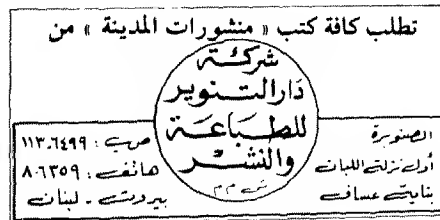 تطلب كافة كتب « منشورات المدينة » من
شركة
دار التنوير
للطباعة
والنشر
ش م م
الصنوبرة
أول نزلة اللبان
بناية عساف
ص ب : ١١٣،٦٤٩٩
هاتف : ٨٠٦٣٥٩
بيروت - لبنان